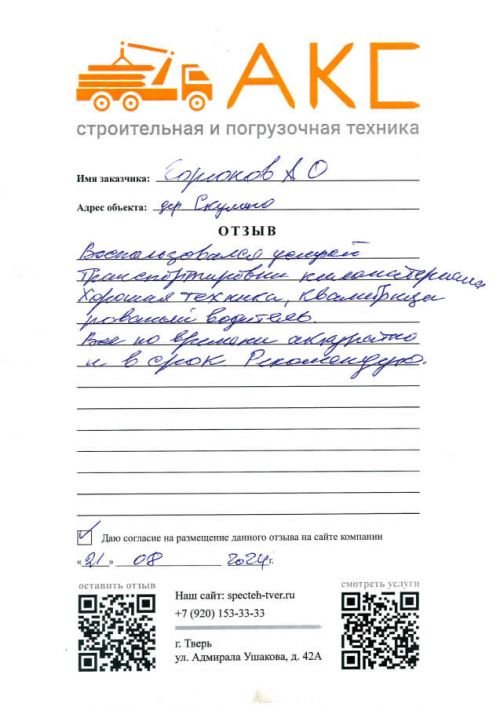 АКС
строительная и погрузочная техника
Имя заказчика: А О
Адрес объекта: дер
ОТЗЫВ
Воспользовался услугой
Транспортировки пиломатериала
Хорошая техника, квалифици
рованый водитель.
Все по времени аккуратно
и в срок Рекомендую.
Даю согласие на размещение данного отзыва на сайте компании
«21» 08 2024г.
оставить отзыв
смотреть услуги
Наш сайт: specteh-tver.ru
+7 (920) 153-33-33
г. Тверь
ул. Адмирала Ушакова, д. 42А